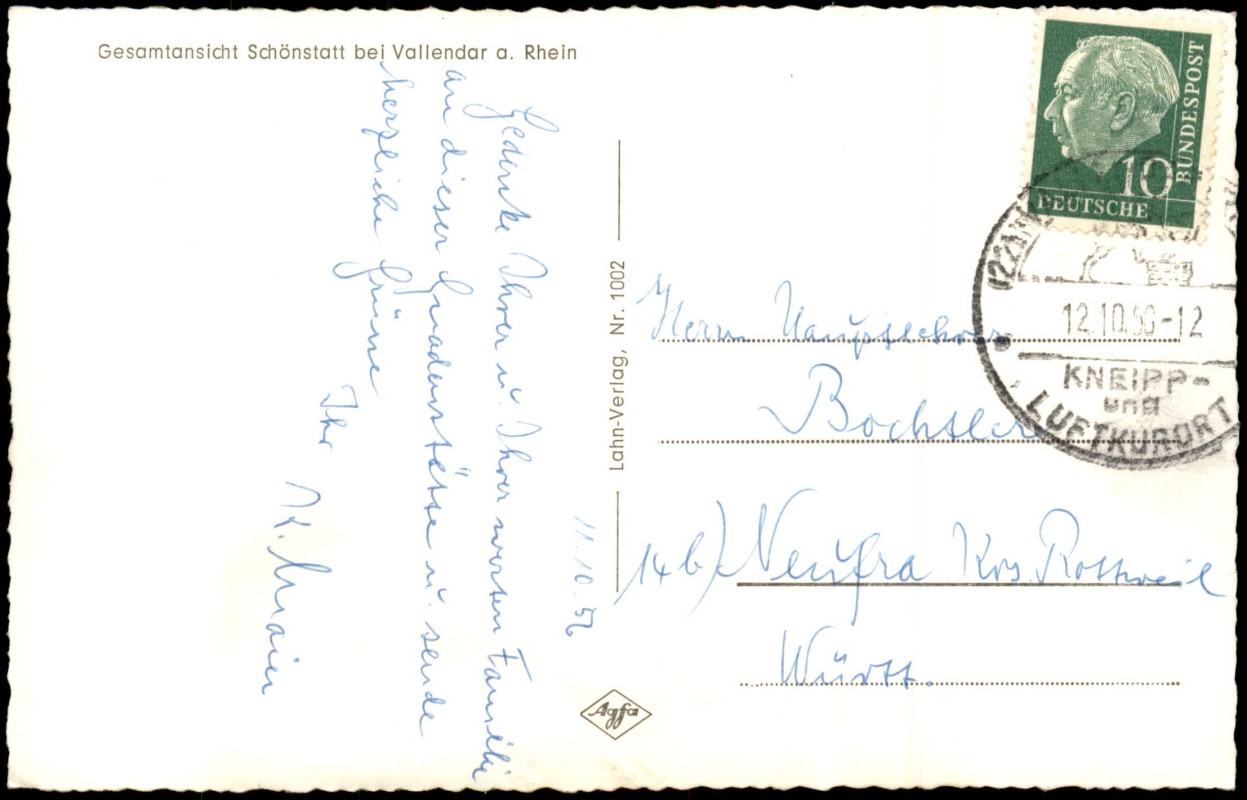 Gesamtansicht Schönstatt bei Vallendar a. Rhein
11.10.56
Gedenke Ihrer u. Ihrer werten Familie
an dieser Gnadenstätte u. sende
herzliche Grüsse
Ihr
K. Maier
Lahn-Verlag, Nr. 1002
Agfa
10
DEUTSCHE
BUNDESPOST
12.10.56-12
KNEIPP-
und
LUFTKURORT
Herrn Hauptlehrer
Bochtler
14b) Neufra Krs. Rottweil
Württ.